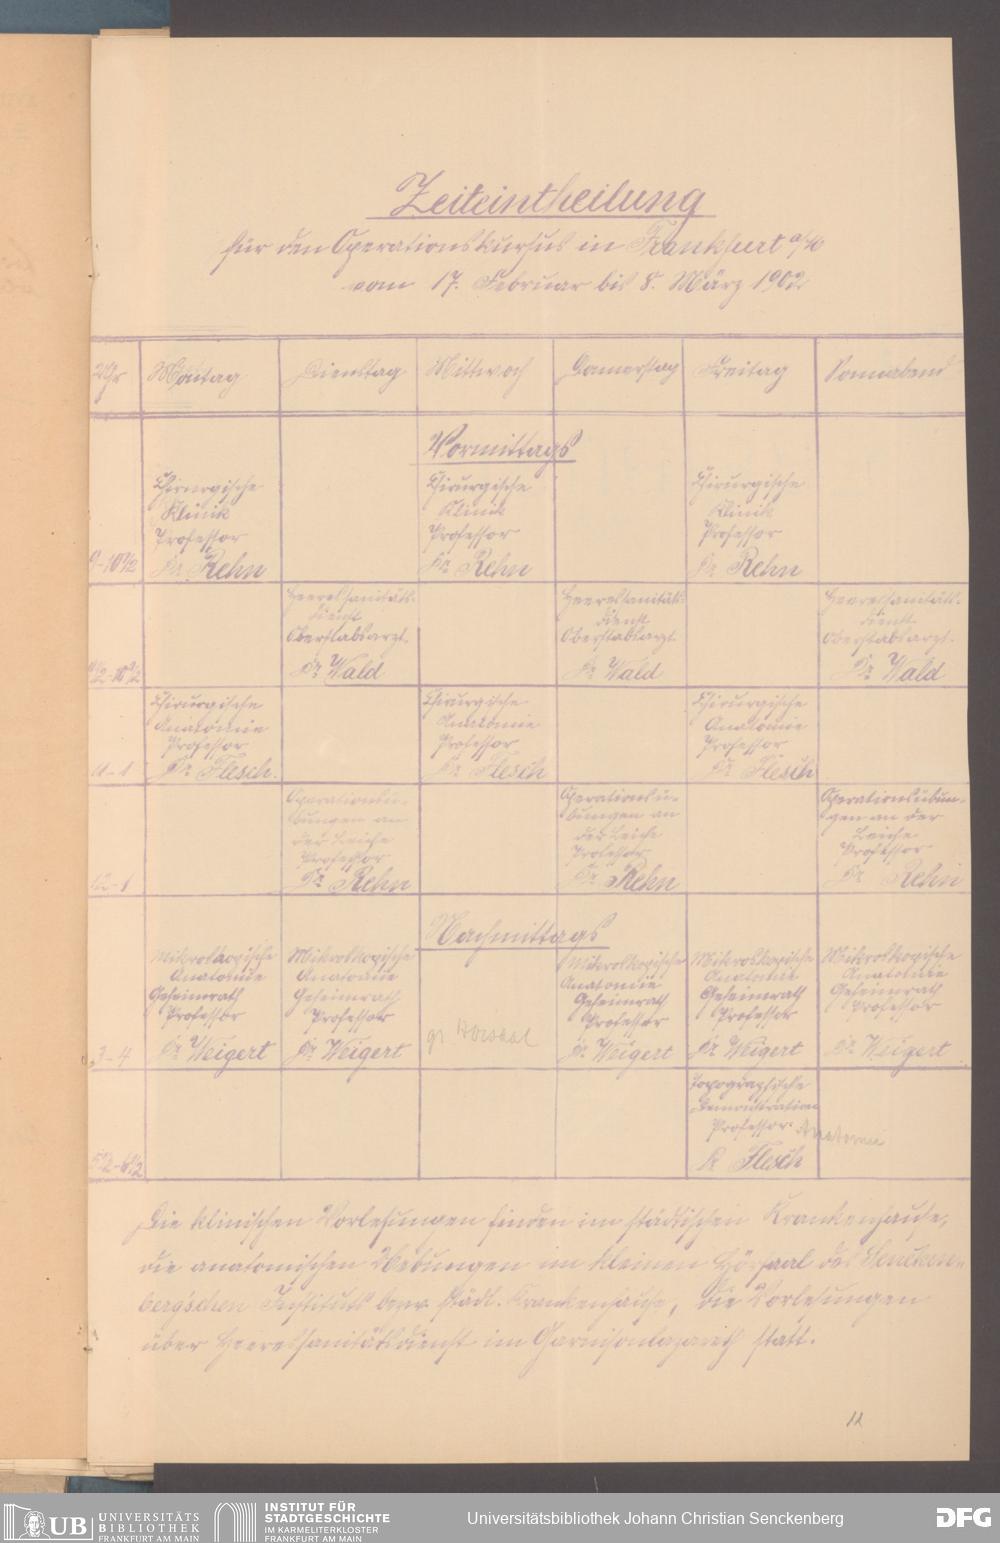 Zeiteintheilung
für den Operationskursus in Frankfurt a/M
vom 17. Februar bis 8. März 1902
Uhr Montag Dienstag Mittwoch Donnerstag Freitag Sonnabend
Vormittags
Chirurgische Chirurgische Chirurgische
Klinik Klinik Klinik
Professor Professor Professor
9-10½ Dr. Rehn Dr. Rehn Dr. Rehn
Heeressanitäts- Heeressanitäts- Heeressanitäts-
dienst dienst dienst
Oberstabsarzt Oberstabsarzt Oberstabsarzt
Dr. Wald Dr. Wald Dr. Wald
Chirurgische Chirurgische Chirurgische
Anatomie Anatomie Anatomie
Professor Professor Professor
11-1 Dr. Flesch. Dr. Flesch Dr. Flesch
Operationsü- Operationsü- Operationsübun-
bungen an bungen an gen an der
der Leiche der Leiche Leiche
Professor Professor Professor
12-1 Dr. Rehn Dr. Rehn Dr. Rehn
Nachmittags
Mikroskopische Mikroskopische Mikroskopische Mikroskopische Mikroskopische
Anatomie Anatomie Anatomie Anatomie Anatomie
Geheimrath Geheimrath Geheimrath Geheimrath Geheimrath
Professor Professor Professor Professor Professor
gr. Hörsaal
3-4 Dr. Weigert Dr. Weigert Dr. Weigert Dr. Weigert Dr. Weigert
Topographische
Demonstration
Professor Anatomie
5½-6½ Dr. Flesch
Die klinischen Vorlesungen finden im städtischen Krankenhause,
die anatomischen Uebungen im kleinen Hörsaal des Sencken-
berg'schen Instituts bezw. städt. Krankenhause, die Vorlesungen
über Heeressanitätsdienst im Garnisonlazareth statt.
12
UB UNIVERSITÄTS
BIBLIOTHEK
FRANKFURT AM MAIN
INSTITUT FÜR
STADTGESCHICHTE
IM KARMELITERKLOSTER
FRANKFURT AM MAIN
Universitätsbibliothek Johann Christian Senckenberg
DFG